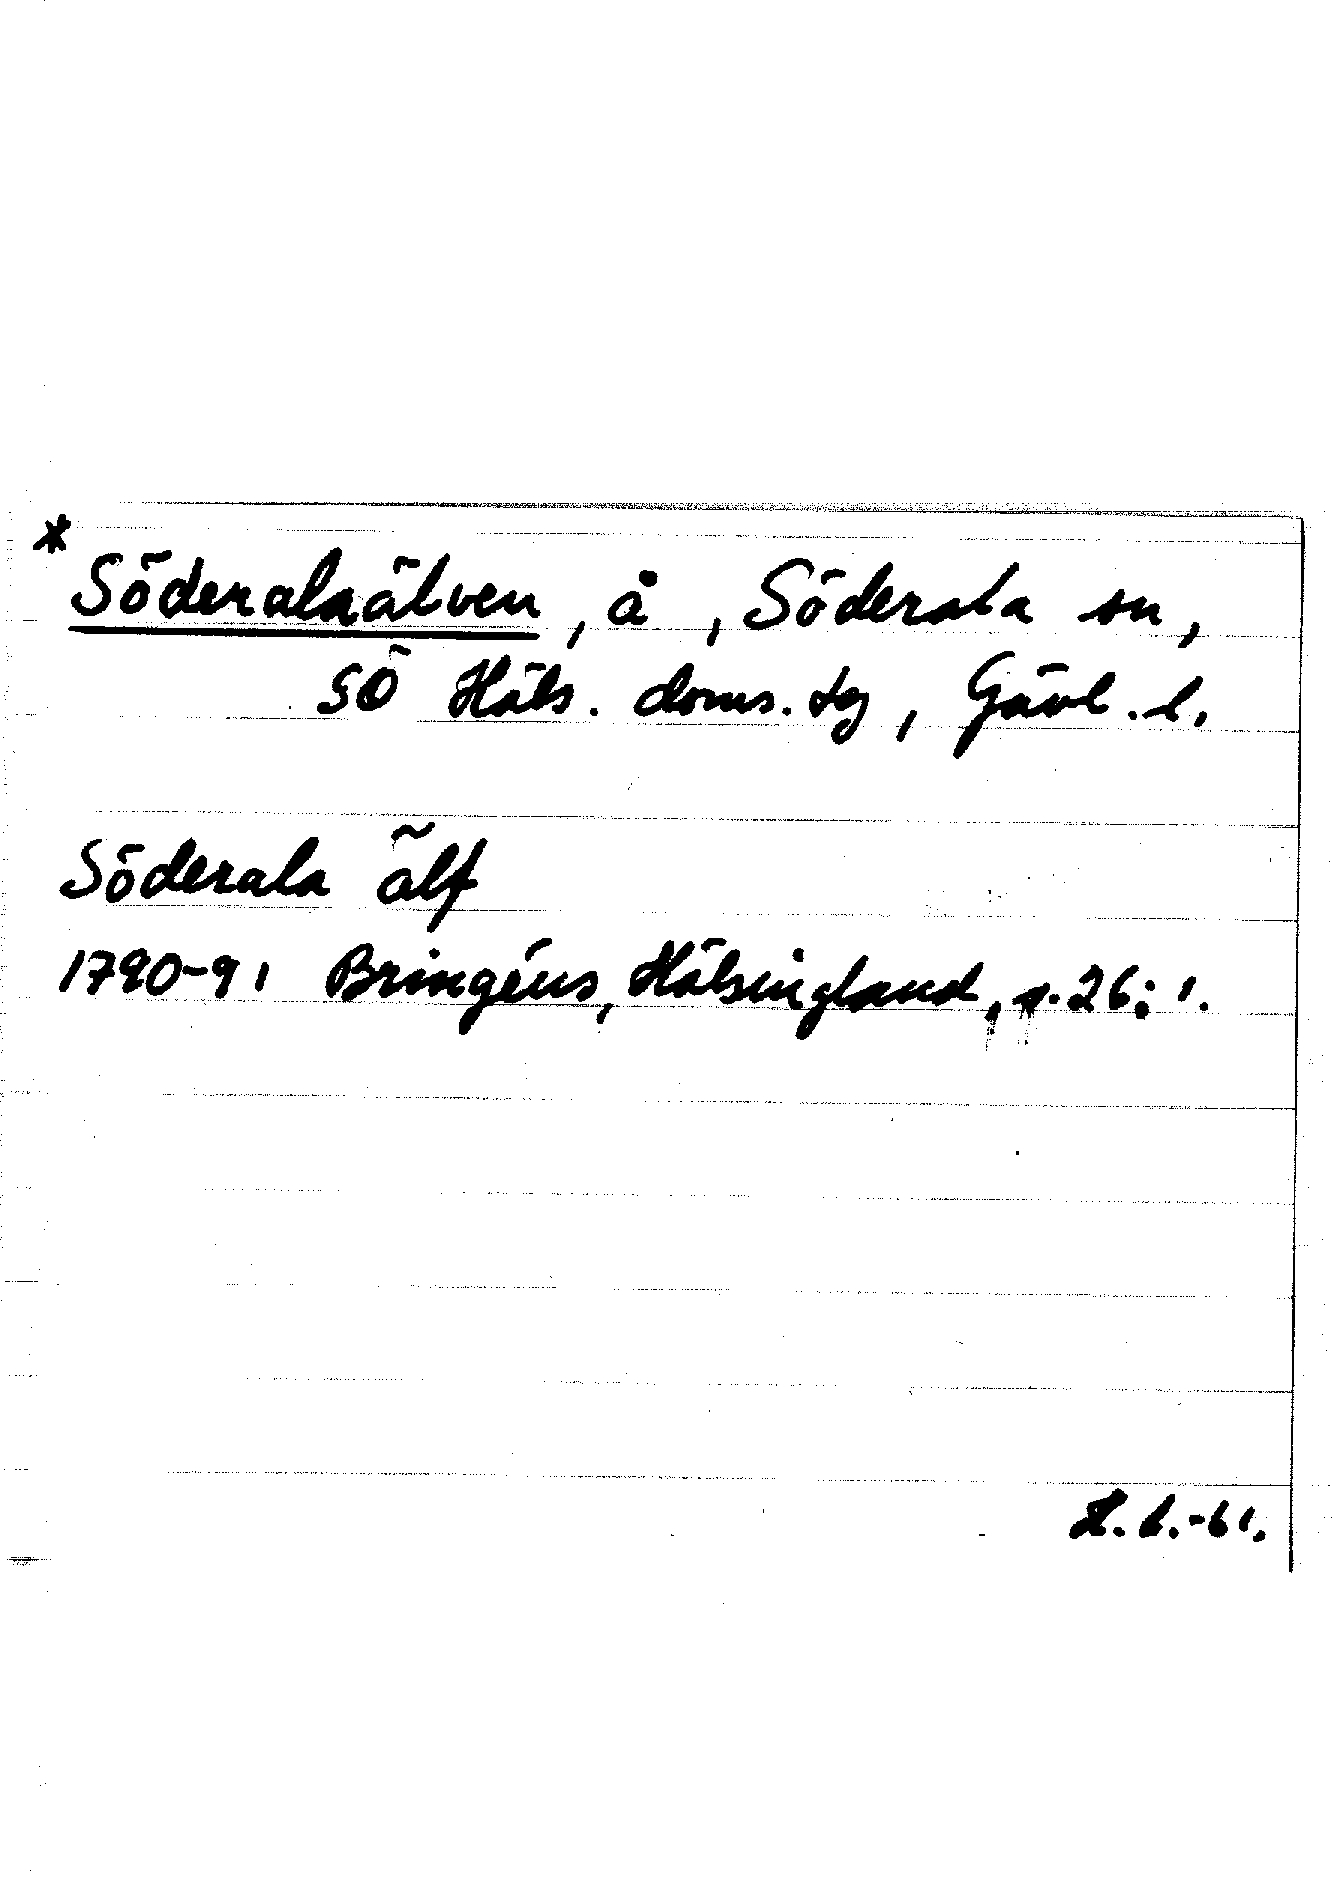 * Söderalaälven, å, Söderala sn,
SÖ Häls. doms. tg, Gävl. l.
Söderala älf
1790-91 Bringéus, Hälsingland, s. 26; 1.
H. L. -61.